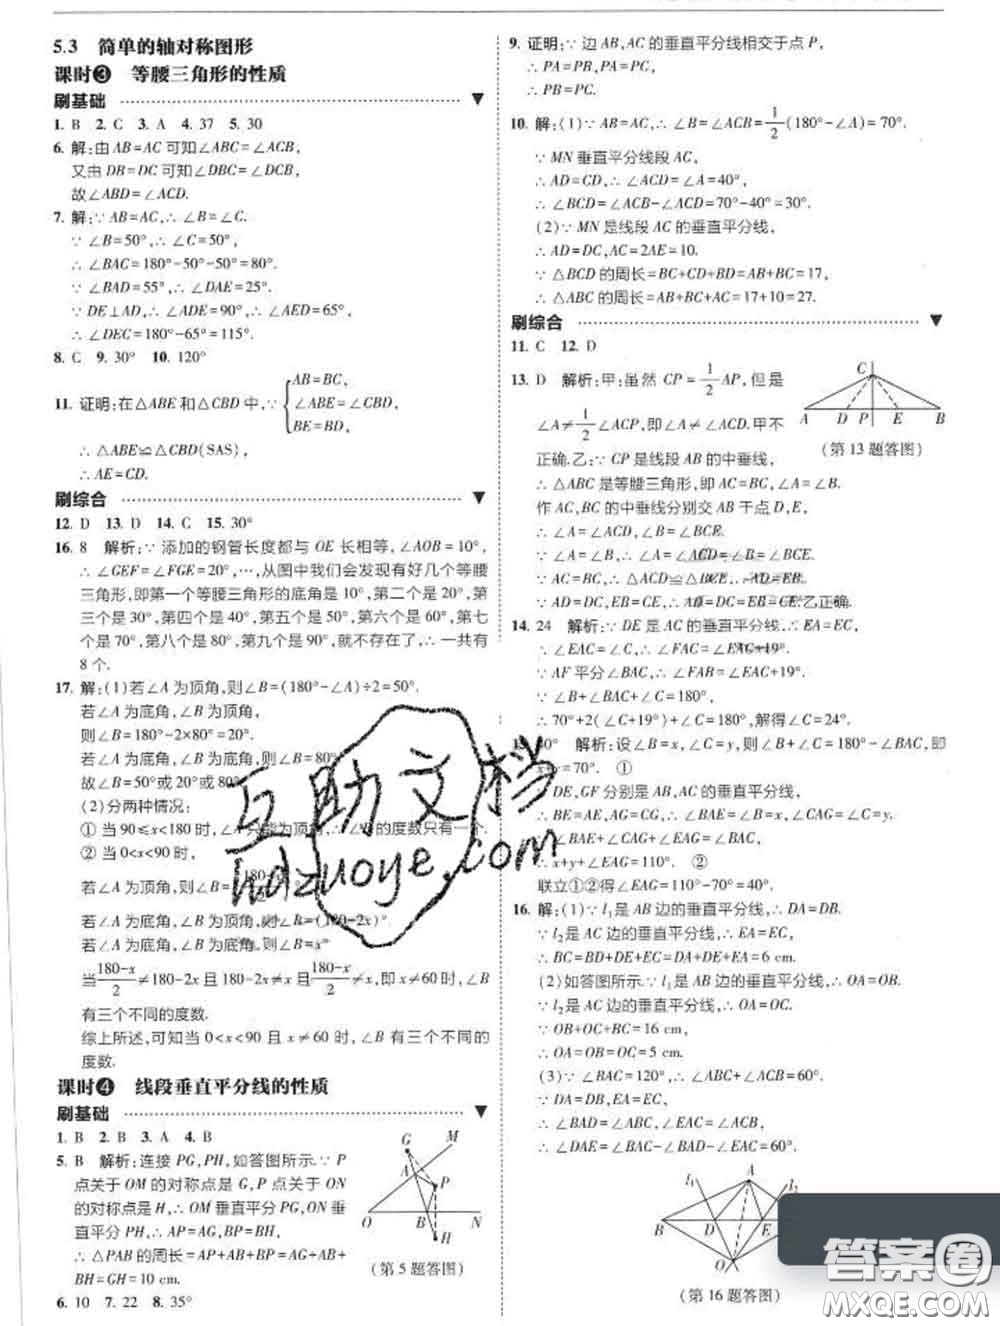 5.3 简单的轴对称图形
课时❸ 等腰三角形的性质
刷基础
1. B 2. C 3. A 4. 37 5. 30
6. 解:由 AB=AC 可知∠ABC=∠ACB,
又由 DB=DC 可知∠DBC=∠DCB,
故∠ABD=∠ACD.
7. 解:∵ AB=AC,∴ ∠B=∠C.
∵ ∠B=50°,∴ ∠C=50°,
∴ ∠BAC=180°-50°-50°=80°.
∵ ∠BAD=55°,∴ ∠DAE=25°.
∵ DE⊥AD,∴ ∠ADE=90°,∴ ∠AED=65°,
∴ ∠DEC=180°-65°=115°.
8. C 9. 30° 10. 120°
11. 证明:在△ABE 和△CBD 中,∵ {AB=BC,
∠ABE=∠CBD,
BE=BD,
∴ △ABE≌△CBD(SAS),
∴ AE=CD.
刷综合
12. D 13. D 14. C 15. 30°
16. 8 解析:∵ 添加的钢管长度都与 OE 长相等,∠AOB=10°,
∴ ∠GEF=∠FGE=20°,…,从图中我们会发现有好几个等腰
三角形,即第一个等腰三角形的底角是 10°,第二个是 20°,第
三个是 30°,第四个是 40°,第五个是 50°,第六个是 60°,第七
个是 70°,第八个是 80°,第九个是 90°,就不存在了,∴ 一共有
8 个.
17. 解:(1)若∠A 为顶角,则∠B=(180°-∠A)÷2=50°.
若∠A 为底角,∠B 为顶角,
则∠B=180°-2×80°=20°.
若∠A 为底角,∠B 为底角,则∠B=80°
故∠B=50°或 20°或 80°
(2)分两种情况:
① 当 90≤x<180 时,∠A 只能为顶角,∴ ∠B 的度数只有一个.
② 当 0<x<90 时,
若∠A 为顶角,则∠B=(180-x/2)°
若∠A 为底角,∠B 为顶角,则∠B=(180-2x)°
若∠A 为底角,∠B 为底角,则∠B=x°
当 180-x/2≠180-2x 且 180-2x≠x 且 180-x/2≠x,即 x≠60 时,∠B
有三个不同的度数.
综上所述,可知当 0<x<90 且 x≠60 时,∠B 有三个不同的
度数.
课时❹ 线段垂直平分线的性质
刷基础
1. B 2. B 3. A 4. B
5. B 解析:连接 PG,PH,如答图所示.∵ P
点关于 OM 的对称点是 G,P 点关于 ON
的对称点是 H,∴ OM 垂直平分 PG,ON 垂
直平分 PH,∴ AP=AG,BP=BH,
∴ △PAB 的周长=AP+AB+BP=AG+AB+
BH=GH=10 cm.
G M A P O B N H
(第 5 题答图)
6. 10 7. 22 8. 35°
9. 证明:∵ 边 AB,AC 的垂直平分线相交于点 P,
∴ PA=PB,PA=PC,
∴ PB=PC.
10. 解:(1)∵ AB=AC,∴ ∠B=∠ACB=1/2(180°-∠A)=70°.
∵ MN 垂直平分线段 AC,
∴ AD=CD,∴ ∠ACD=∠A=40°,
∴ ∠BCD=∠ACB-∠ACD=70°-40°=30°.
(2)∵ MN 是线段 AC 的垂直平分线,
∴ AD=DC,AC=2AE=10.
∵ △BCD 的周长=BC+CD+BD=AB+BC=17,
∴ △ABC 的周长=AB+BC+AC=17+10=27.
刷综合
11. C 12. D
13. D 解析:甲:虽然 CP=1/2AP,但是
∠A≠1/2∠ACP,即∠A≠∠ACD.甲不
正确.乙:∵ CP 是线段 AB 的中垂线,
∴ △ABC 是等腰三角形,即 AC=BC,∠A=∠B.
作 AC,BC 的中垂线分别交 AB 于点 D,E,
∴ ∠A=∠ACD,∠B=∠BCE.
∵ ∠A=∠B,∴ ∠A=∠ACD=∠B=∠BCE.
∵ AC=BC,∴ △ACD≌△BCE,∴ AD=EB.
∵ AD=DC,EB=CE,∴ AD=DC=EB=CE.乙正确.
C A D P E B
(第 13 题答图)
14. 24 解析:∵ DE 是 AC 的垂直平分线,∴ EA=EC,
∴ ∠EAC=∠C,∴ ∠FAC=∠EAC+19°.
∵ AF 平分∠BAC,∴ ∠FAB=∠EAC+19°.
∵ ∠B+∠BAC+∠C=180°,
∴ 70°+2(∠C+19°)+∠C=180°,解得∠C=24°.
15. 40° 解析:设∠B=x,∠C=y,则∠B+∠C=180°-∠BAC,即
x+y=70°. ①
DE,GF 分别是 AB,AC 的垂直平分线,
∴ BE=AE,AG=CG,∴ ∠BAE=∠B=x,∠CAG=∠C=y.
∠BAE+∠CAG+∠EAG=∠BAC,
∴ x+y+∠EAG=110°. ②
联立①②得∠EAG=110°-70°=40°.
16. 解:(1)∵ l₁是 AB 边的垂直平分线,∴ DA=DB.
∵ l₂是 AC 边的垂直平分线,∴ EA=EC.
∴ BC=BD+DE+EC=DA+DE+EA=6 cm.
(2)如答图所示.∵ l₁是 AB 边的垂直平分线,∴ OA=OB.
∵ l₂是 AC 边的垂直平分线,∴ OA=OC.
∵ OB+OC+BC=16 cm,
∴ OA=OB=OC=5 cm.
(3)∵ ∠BAC=120°,∴ ∠ABC+∠ACB=60°.
∵ DA=DB,EA=EC,
∴ ∠BAD=∠ABC,∠EAC=∠ACB,
∴ ∠DAE=∠BAC-∠BAD-∠EAC=60°.
l₁ A l₂ B D E O
(第 16 题答图)
互助文档
hdzuoye.com
答案圈
MXQE.COM